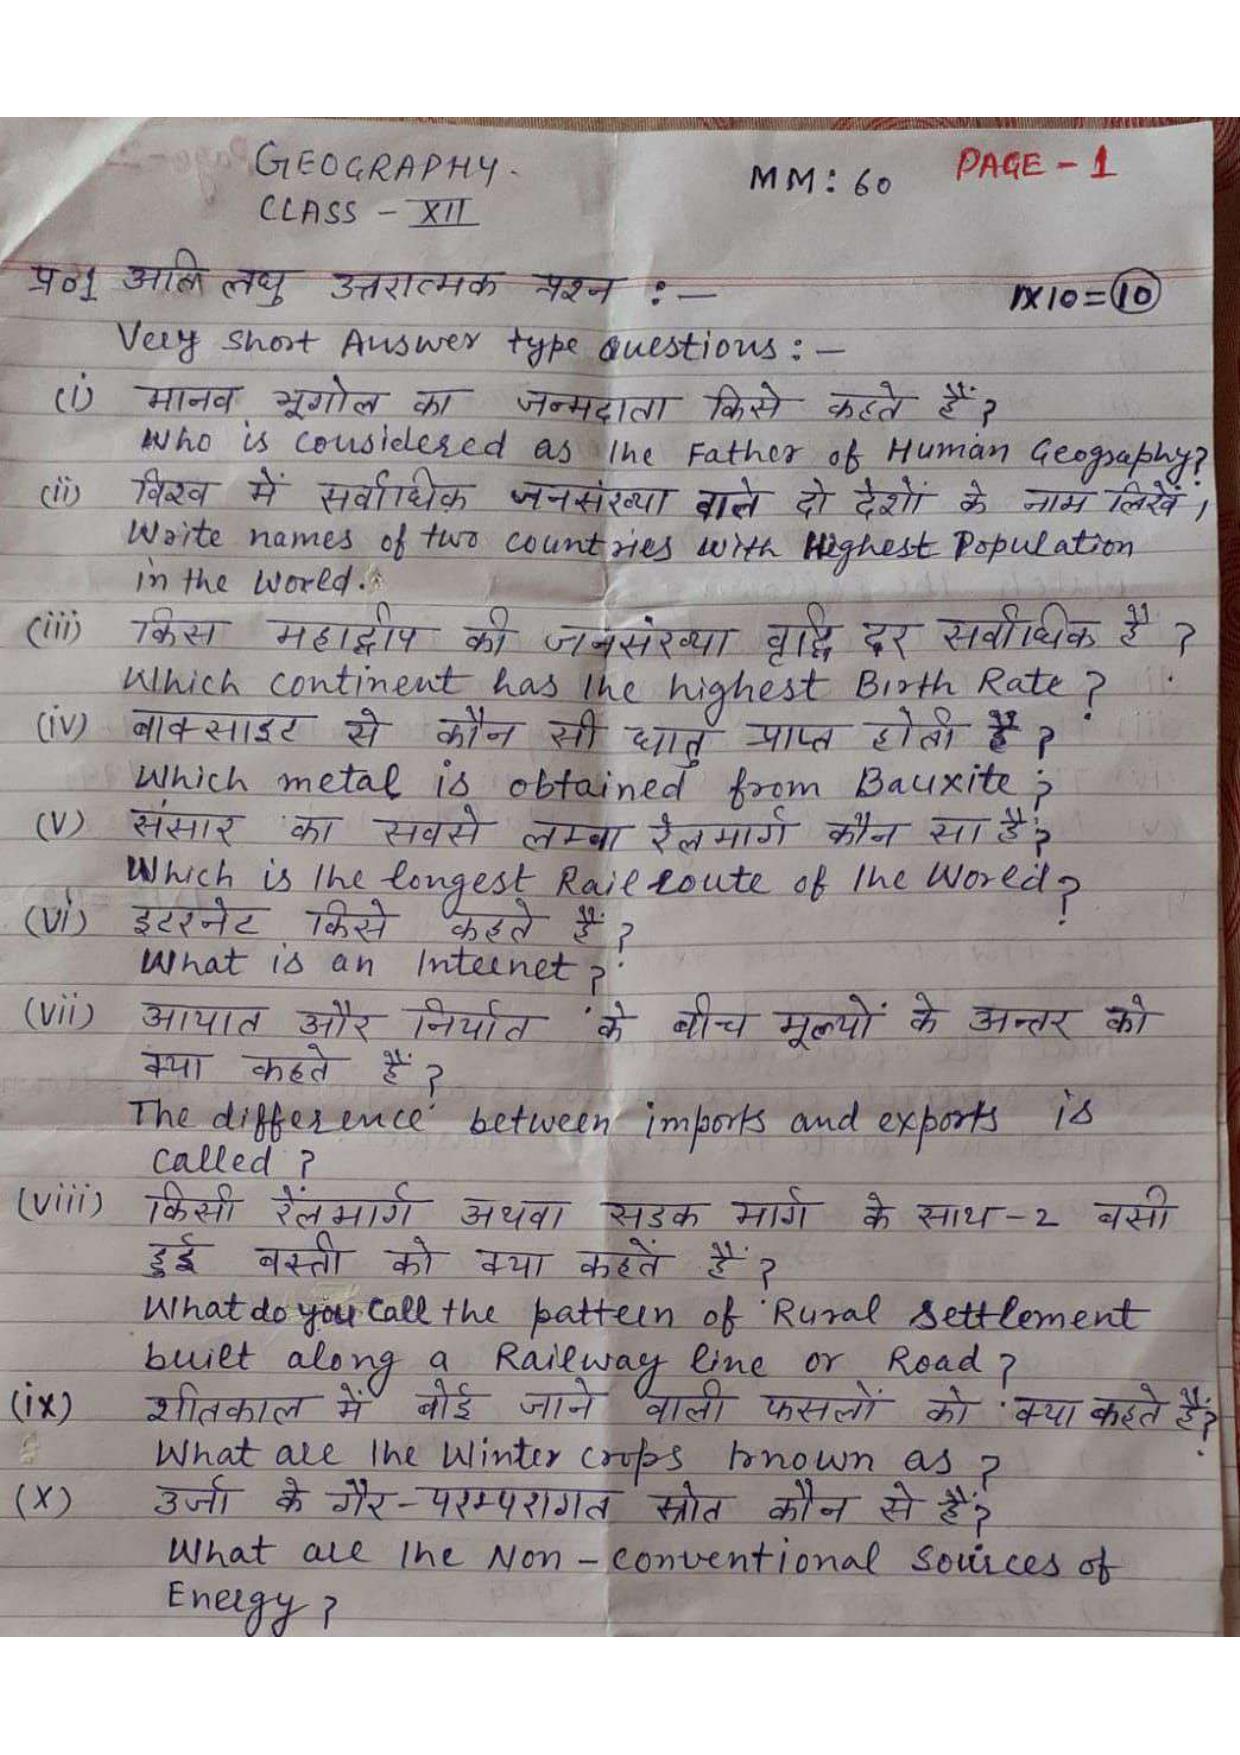 GEOGRAPHY.
CLASS - XII
MM: 60
PAGE - 1
प्र01 अति लघु उत्तरात्मक प्रश्न :-
1X10=10
Very Short Answer type Questions: -
(i) मानव भूगोल का जन्मदाता किसे कहते हैं?
Who is considered as the Father of Human Geography?
(ii) विश्व में सर्वाधिक जनसंख्या वाले दो देशों के नाम लिखें।
Write names of two countries with Highest Population
in the World.
(iii) किस महाद्वीप की जनसंख्या वृद्धि दर सर्वाधिक है ?
Which continent has the highest Birth Rate ?
(iv) बाक्साइट से कौन सी धातु प्राप्त होती है ?
Which metal is obtained from Bauxite ?
(v) संसार का सबसे लम्बा रेलमार्ग कौन सा है?
Which is the longest Rail route of the World?
(vi) इटरनेट किसे कहते हैं ?
What is an Internet ?
(vii) आयात और निर्यात के बीच मूल्यों के अन्तर को
क्या कहते हैं ?
The difference between imports and exports is
called ?
(viii) किसी रेंलमार्ग अथवा सडक मार्ग के साथ-2 बसी
हुई बस्ती को क्या कहतें हैं ?
What do you Call the pattern of Rural Settlement
built along a Railway line or Road ?
(ix) शीतकाल में बोई जाने वाली फसलों को क्या कहते हैं?
What are the Winter crops known as ?
(x) उर्जा के गैर-परम्परागत स्रोत कौन से हैं?
What are the Non-conventional Sources of
Energy ?